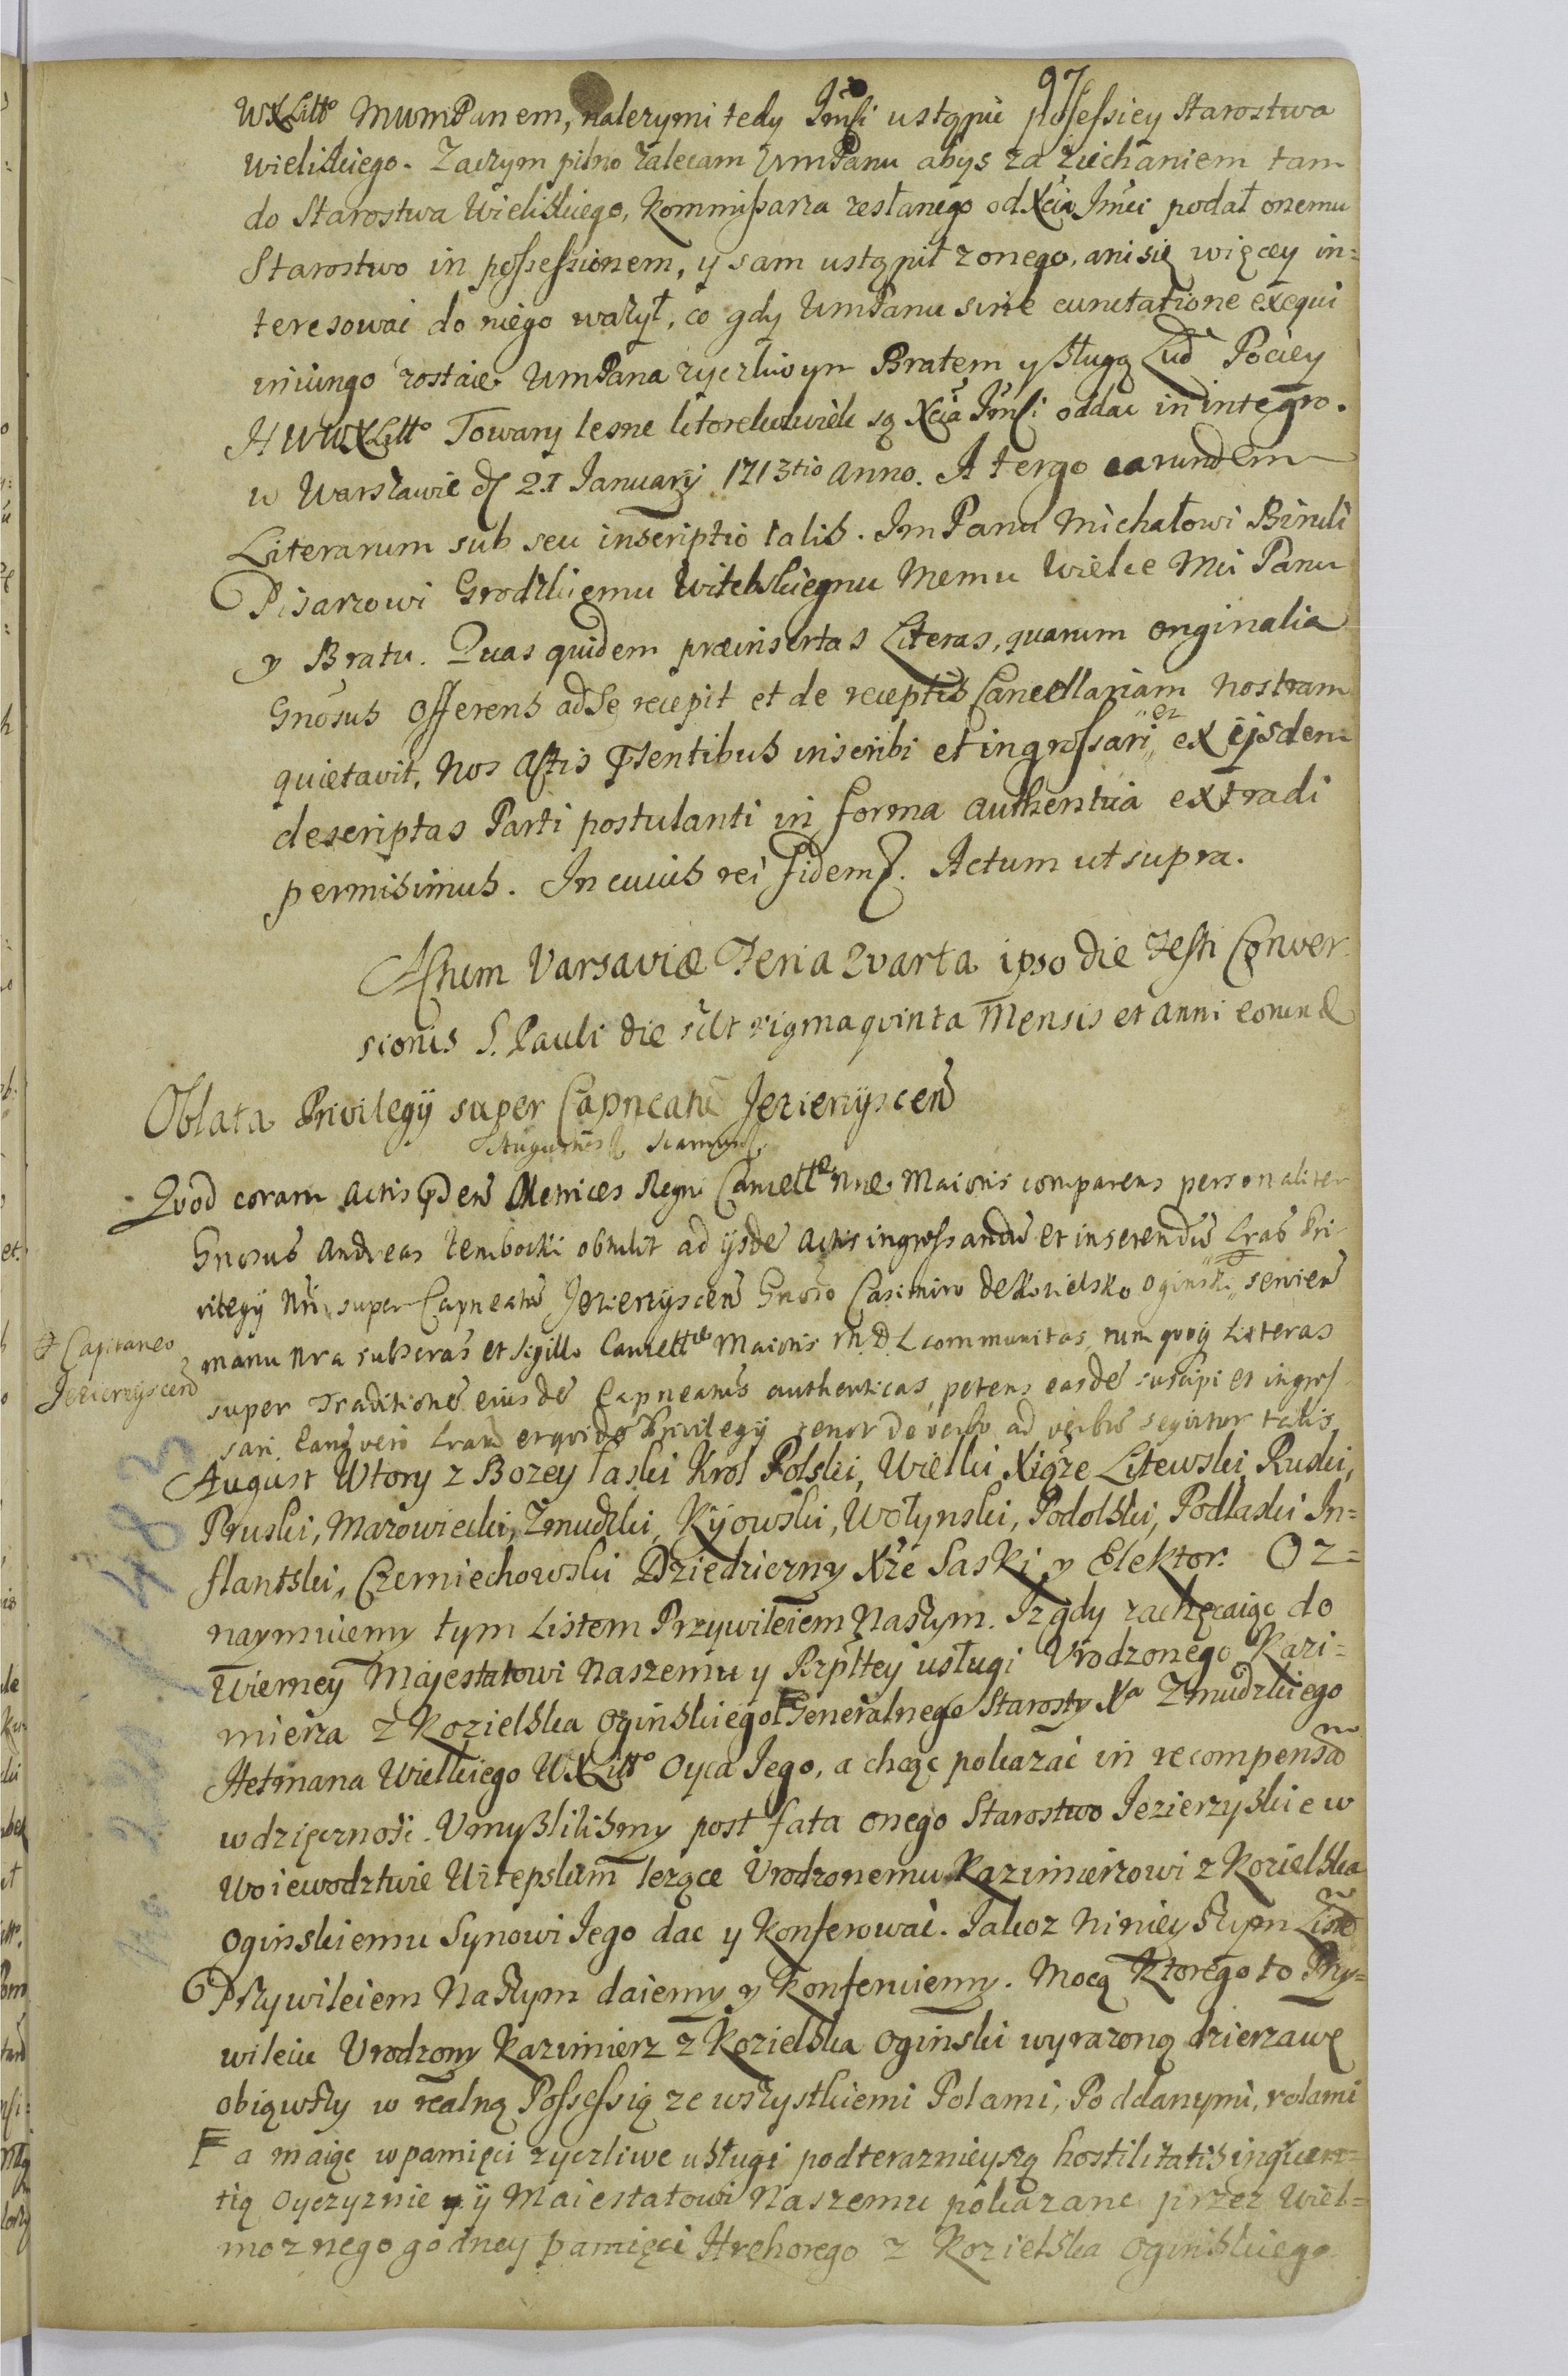 97
WXLitt° MumPanem, nalezymi tedy Jmsi ustąpić possessiey Starostwa
Wieliskiego. Zaczym pilno zalecam UmPanu abys za ziechaniem tam
do Starostwa Wieliskiego, Kommissarza zesłanego od Xcia Jmci podał onemu
Starostwo in possessionem, y sam ustąpił z onego, ani się więcey in=
teresować do niego ważył, co gdy UmPanu sine cunctatione exequi
iniungo zostaię UmPana zyczliwym Bratem y sługą Lud Pociey
H W WXLitt° Towary lesne litorelukwiek są Xcia Jmsi oddac in integro.
w Warszawie d 21 January 1713tio anno. A tergo earundem
Literarum sub seu inscriptio talis. Jm Panu Michałowi Biruli
Pisarzowi Grodzkiemu Witebskiegnu Memu Wielce Mci Panu
y Bratu. Quas quidem præinsertas Literas, quarum originalia
Gnosus Offerens ad Se recepit et de receptis Cancellariam nostram
quietavit, Nos Actis pntibus inscribi et ingrossari, et ex ijsdem
descriptas Parti postulanti in forma authentica extradi
permisimus. In cuius rei fidem. Actum ut supra.
Actum Varsaviæ Feria Quarta ipso die Festi Conver
sionis S. Pauli die scilt vigma quinta Mensis et anni eorund
Oblata Privilegÿ super Capneatu Jezierzyscen
Quod coram actis pnden Metrices Regni Cancellæ nræ Maioris comparens personaliter
Gnosus Andreas Zembocki obtulit ad ijsde actis ingrossandu et inserendu Lras Pri
vilegÿ nri super Capneatu Jezierzyscen Gnoso Casimiro de Kozielsko Oginski, servien
# Capitaneo
Jezierzyscen
manu nra subscras et sigillo Cancellriæ Maioris M.D.L communitas, tum quoq Literas
super Traditione eiusde Capneatus authenticas, petens easde suscipi et ingros
sari. Earuq vero Lraru erquide Privilegÿ tenor de verbo ad verbu seqvitur talis
August Wtory z Bozey łaski Krol Polski, Wielki Xiąże Litewski, Ruski,
Pruski, Mazowiecki, Zmudzki, Kijowski, Wołynski, Podolski, Podlaski In=
flantski, Czerniechowski Dziedziczny Xże Saski, y Elektor. Oz=
naymuiemy tym Listem Przywileiem Naszym. Iz gdy zachęcaiąc do
Wierney Majestatowi Naszemu y Rzpltey usługi Vrodzonego Kazi=
mierza z Kozielska Oginskiego F Generalnego Starosty Xa Zmudzkiego
Hetmana Wielkiego WXLitt° Oyca Jego, a chcąc pokazać in recompensam
wdzięcznosci. Vmyslilismy post fata onego Starostwo Jezierzyskie w
Woiewodztwie Witepskim lezące Vrodzonemu Kazimierzowi z Kozielska
Oginskiemu Synowi Jego dac y Konferować. Jakoz Ninieyszym Liste
Przywileiem Naszym daiemy y Konferuiemy. Mocą Ktorego to Przy=
wileiu Vrodzony Kazimierz z Kozielska Oginski wyrazoną dzierzawę
obiąwszy w realną Possessią ze wszystkiemi Polami, Poddanymi, rolami
F a maiąc w pamięci zyczliwe usługi pod teraznieyszą hostilitatis ingruen=
tią Oyczyznie y ÿ Maiestatowi Naszemu pokazane przez Wiel=
moznego godney pamięci Hrehorego z Kozielska Oginskiego